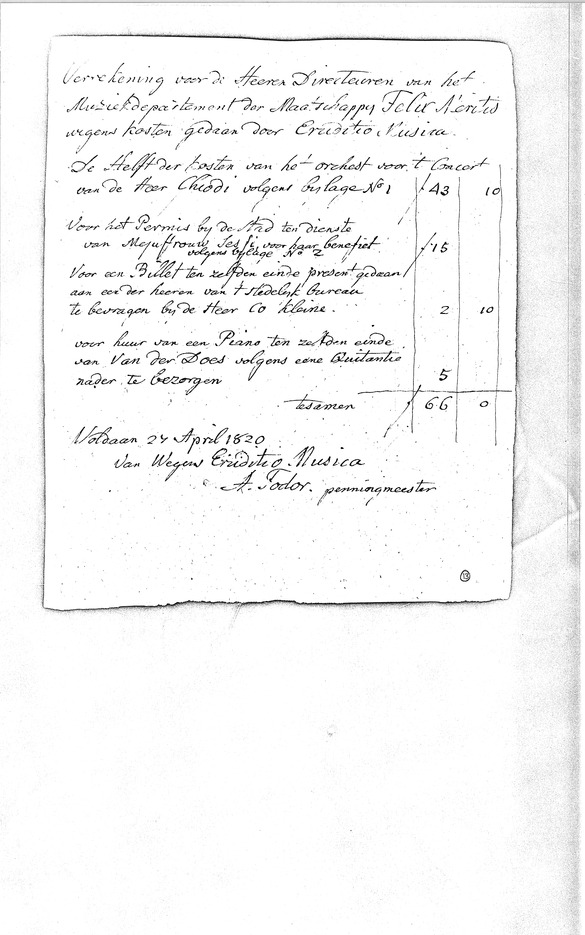 Verrekening voor de Heeren Directeuren van het
Muziekdepartement der Maatschappy Felix Meritis
wegens kosten gedaan door Eruditio Musica.
De Helft der kosten van het orchest voor 't Concert
van de Heer Chiodi volgens bylage No 1 ƒ 43 10
Voor het Permis by de Stad ten dienste
van Mejuffrouw Sessi, voor haar benefiet ƒ 15
volgens bylage No 2
Voor een Billet ten zelfden einde present gedaan
aan een der heeren van 't stedelyk bureau
te bevragen by de Heer Co Kleine. 2 10
voor huur van een Piano ten zelfden einde
van Van der Does volgens eene Quitantie
nader te bezorgen 5
tesamen ƒ 66 0
Voldaan 24 April 1820
van Wegens Eruditio Musica
A. Fodor. penningmeester
13